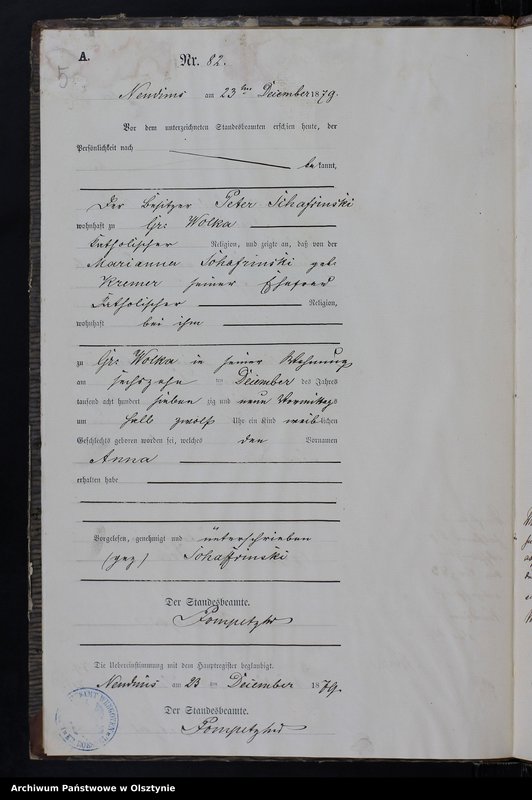 A.
Nr. 82.
5.
am 23ten Dezember 1879.
Vor dem unterzeichneten Standesbeamten erschien heute, der
Persönlichkeit nach
bekannt,
der Besitzer Peter Schafrinski
wohnhaft zu Gr: Wolka
katholischer Religion, und zeigte an, daß von der
Marianna Schafrinski geb.
Kremer seiner Ehefrau
katholischer Religion,
wohnhaft bei ihm
zu Gr: Wolka in seiner Wohnung
am sechszehn ten Dezember des Jahres
tausend acht hundert sieben zig und neun Vormittags
um halb zwölf Uhr ein Kind weiblichen
Geschlechts geboren worden sei, welches den Vornamen
Anna
erhalten habe
Vorgelesen, genehmigt und unterschrieben
(gez) Schaffrinski
Der Standesbeamte.
Die Uebereinstimmung mit dem Hauptregister beglaubigt.
am 23 ten Dezember 1879.
Der Standesbeamte.
Archiwum Państwowe w Olsztynie